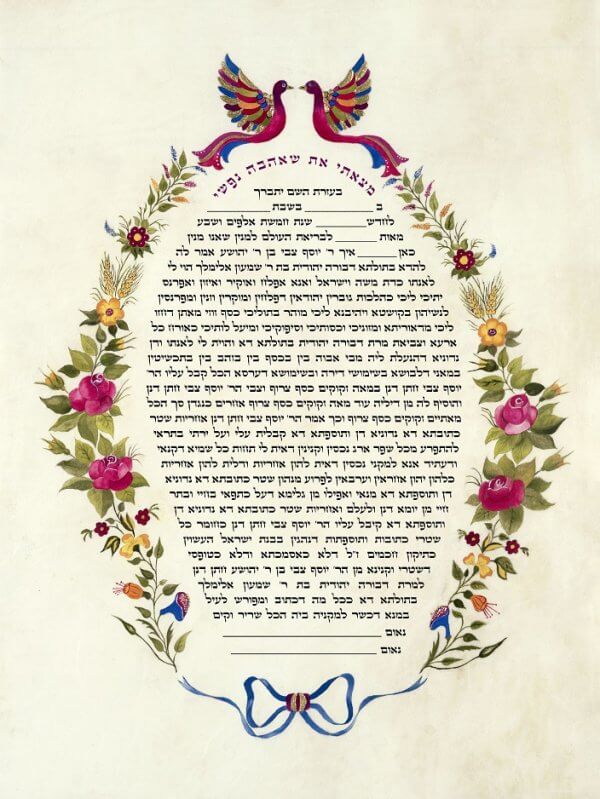 מצאתי את שאהבה נפשי
בעזרת השם יתברך
ב__________ בשבת __________
לחדש__________ שנת חמשת אלפים ושבע
מאות __________ לבריאת העולם למנין שאנו מנין
כאן __________ איך ר׳ יוסף צבי בן ר׳ יהושע אמר לה
להדא בתולתא דבורה יהודית בת ר׳ שמעון אלימלך הוי לי
לאנתו כדת משה וישראל ואנא אפלח ואוקיר ואיזון ואפרנס
יתיכי ליכי כהלכות גוברין יהודאין דפלחין ומוקרין וזנין ומפרנסין
לנשיהון בקושטא ויהיבנא ליכי מוהר בתוליכי כסף זוזי מאתן דחזו
ליכי מדאוריתא ומזוניכי וכסותיכי וסיפוקיכי ומיעל לותיכי כאורח כל
ארעא וצביאת מרת דבורה יהודית בתולתא דא והוית לי לאנתו ודן
נדוניא דהנעלת ליה מבי אבוה בין בכסף בין בזהב בין בתכשיטין
במאני דלבושא בשימושי דירה ובשימושא דערסא הכל קבל עליו הר׳
יוסף צבי חתן דנן במאה זקוקים כסף צרוף וצבי הר׳ יוסף צבי חתן דנן
והוסיף לה מן דיליה עוד מאה זקוקים כסף צרוף אחרים כנגדן סך הכל
מאתיים זקוקים כסף צרוף וכך אמר הר׳ יוסף צבי חתן דנן אחריות שטר
כתובתא דא נדוניא דן ותוספתא דא קבלית עלי ועל ירתי בתראי
להתפרע מכל שפר ארג נכסין וקנינין דאית לי תחות כל שמיא דקנאי
ודעתיד אנא למקני נכסין דאית להון אחריות ודלית להון אחריות
כלהון יהון אחראין וערבאין לפרוע מנהון שטר כתובתא דא נדוניא
דן ותוספתא דא מנאי ואפילו מן גלימא דעל כתפאי בחיי ובתר
חיי מן יומא דנן ולעלם ואחריות שטר כתובתא דא נדוניא דן
ותוספתא דא קיבל עליו הר׳ יוסף צבי חתן דנן כחומר כל
שטרי כתובות ותוספתות דנהגין בבנת ישראל העשוין
כתיקון חכמים ז״ל דלא כאסמכתא ודלא כטופסי
דשטרי וקנינא מן הר׳ יוסף צבי בן ר׳ יהושע חתן דנן
למרת דבורה יהודית בת ר׳ שמעון אלימלך
בתולתא דא ככל מה דכתוב ומפורש לעיל
במנא דכשר למקניה ביה הכל שריר וקים
נאום __________
נאום __________